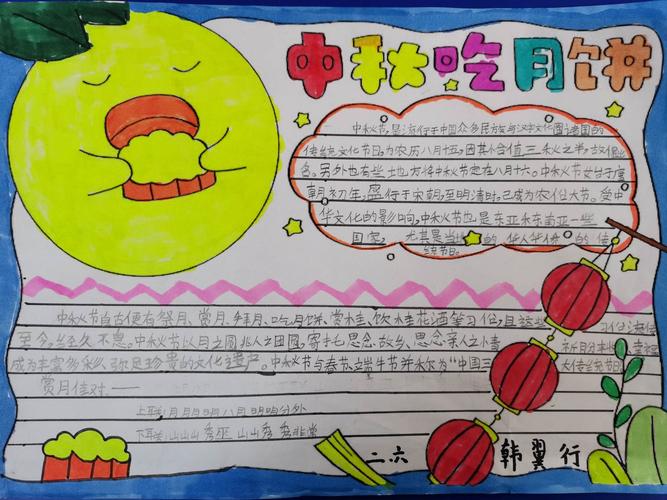 中秋吃月饼
中秋节,是流行于中国众多民族与汉字文化圈诸国的
传统文化节日,为农历八月十五,因其恰值三秋之半,故得此
名。另外也有些地方将中秋节定在八月十六。中秋节始于唐
朝初年,盛行于宋朝,至明清时,已成为农俗大节。受中
华文化的影响,中秋节也是东亚和东南亚一些
国家,尤其是当地的华人华侨的传
统节日。
中秋节自古便有祭月、赏月、拜月、吃月饼、赏桂、饮桂花酒等习俗,且这些 习俗
至今,经久不息。中秋节以月之圆兆人之团圆,寄托思念故乡,思念亲人之情
成为丰富多彩、弥足珍贵的文化遗产。中秋节与春节、端午节并称为"中国三 大传统节日。
赏月佳对.——
上联:月月月明八月明明分外
下联:山山山秀巫山山秀秀非常
二六 韩翼行